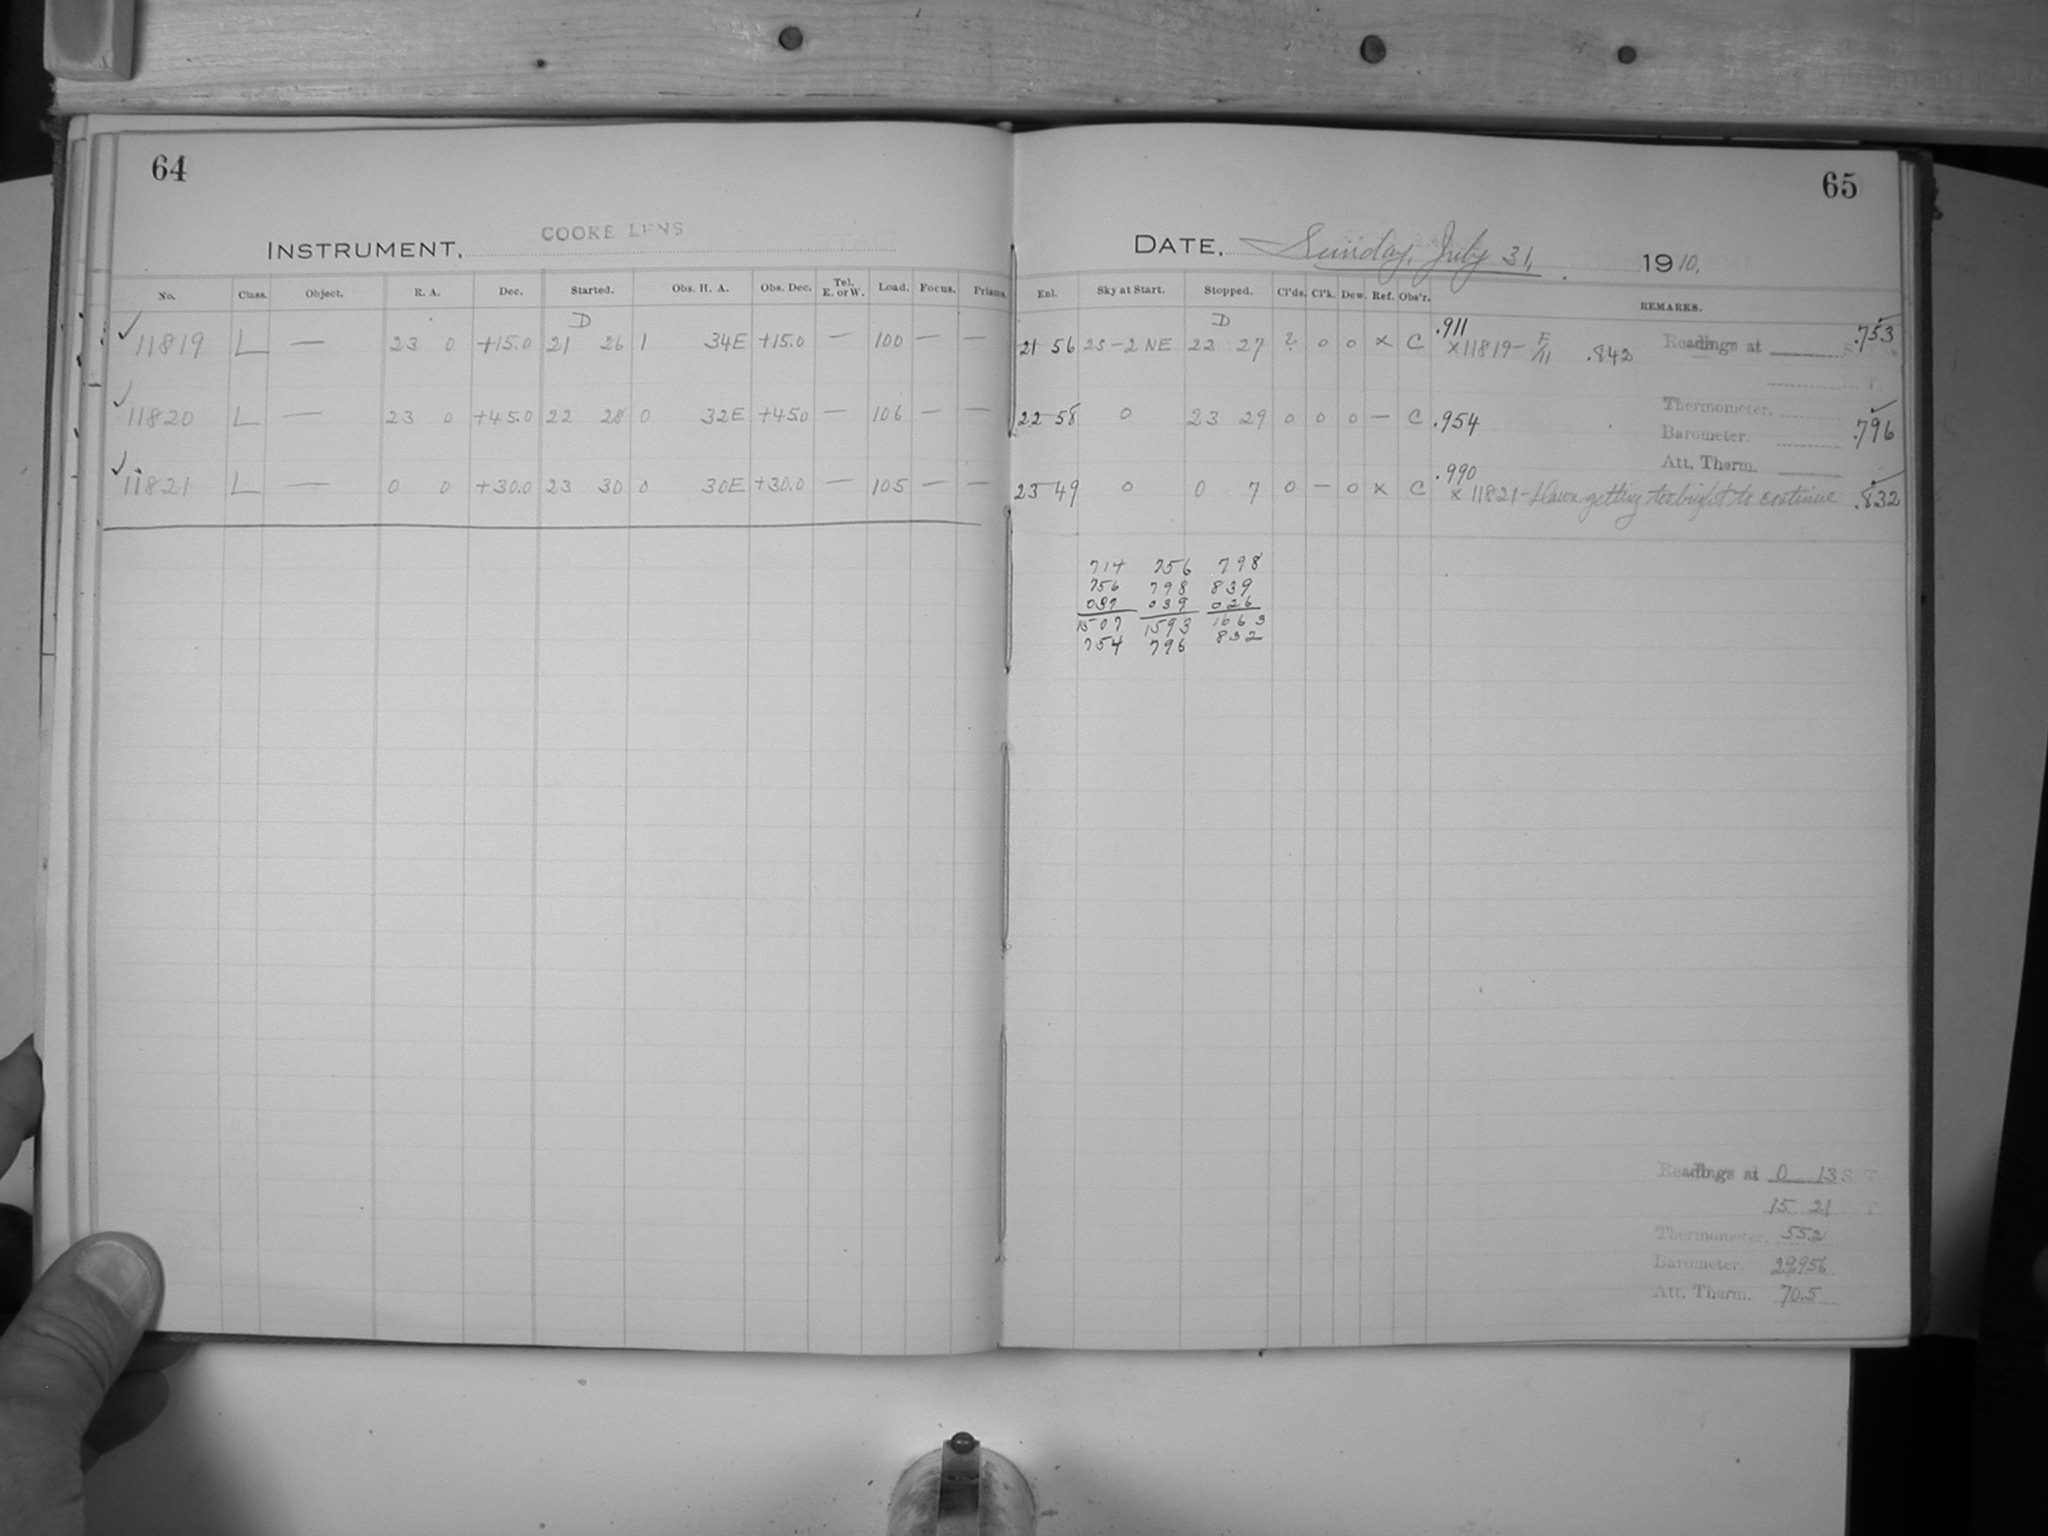 64
INSTRUMENT, COOKE LENS
No. Class. Object. R. A. Dec. Started. Obs. H. A. Obs. Dec. Tel. E. or W. Load. Focus. Prisms.
D
11819 L — 23 0 +15.0 21 26 1 34E +15.0 — 100 — —
11820 L — 23 0 +45.0 22 28 0 32E +45.0 — 106 — —
11821 L — 0 0 +30.0 23 30 0 30E +30.0 — 105 — —
65
DATE, Sunday, July 31, 1910,
Enl. Sky at Start. Stopped. Cl'ds. Cl'k. Dew. Ref. Obs'r. REMARKS.
D
.911
21 56 2S-2 NE 22 27 ? 0 0 x C x 11819- F/11 .842 Readings at S. T. .753
Thermometer.
22 58 0 23 29 0 0 0 — C .954 .796
Barometer.
Att. Therm.
.990
23 49 0 0 7 0 — 0 x C x 11821-Dawn getting too bright to continue .832
714 756 798
756 798 839
037 039 026
1507 1593 1663
754 796 832
Readings at 0 13 S. T.
15 21
Thermometer. 55.2
Barometer. 29.956
Att. Therm. 70.5